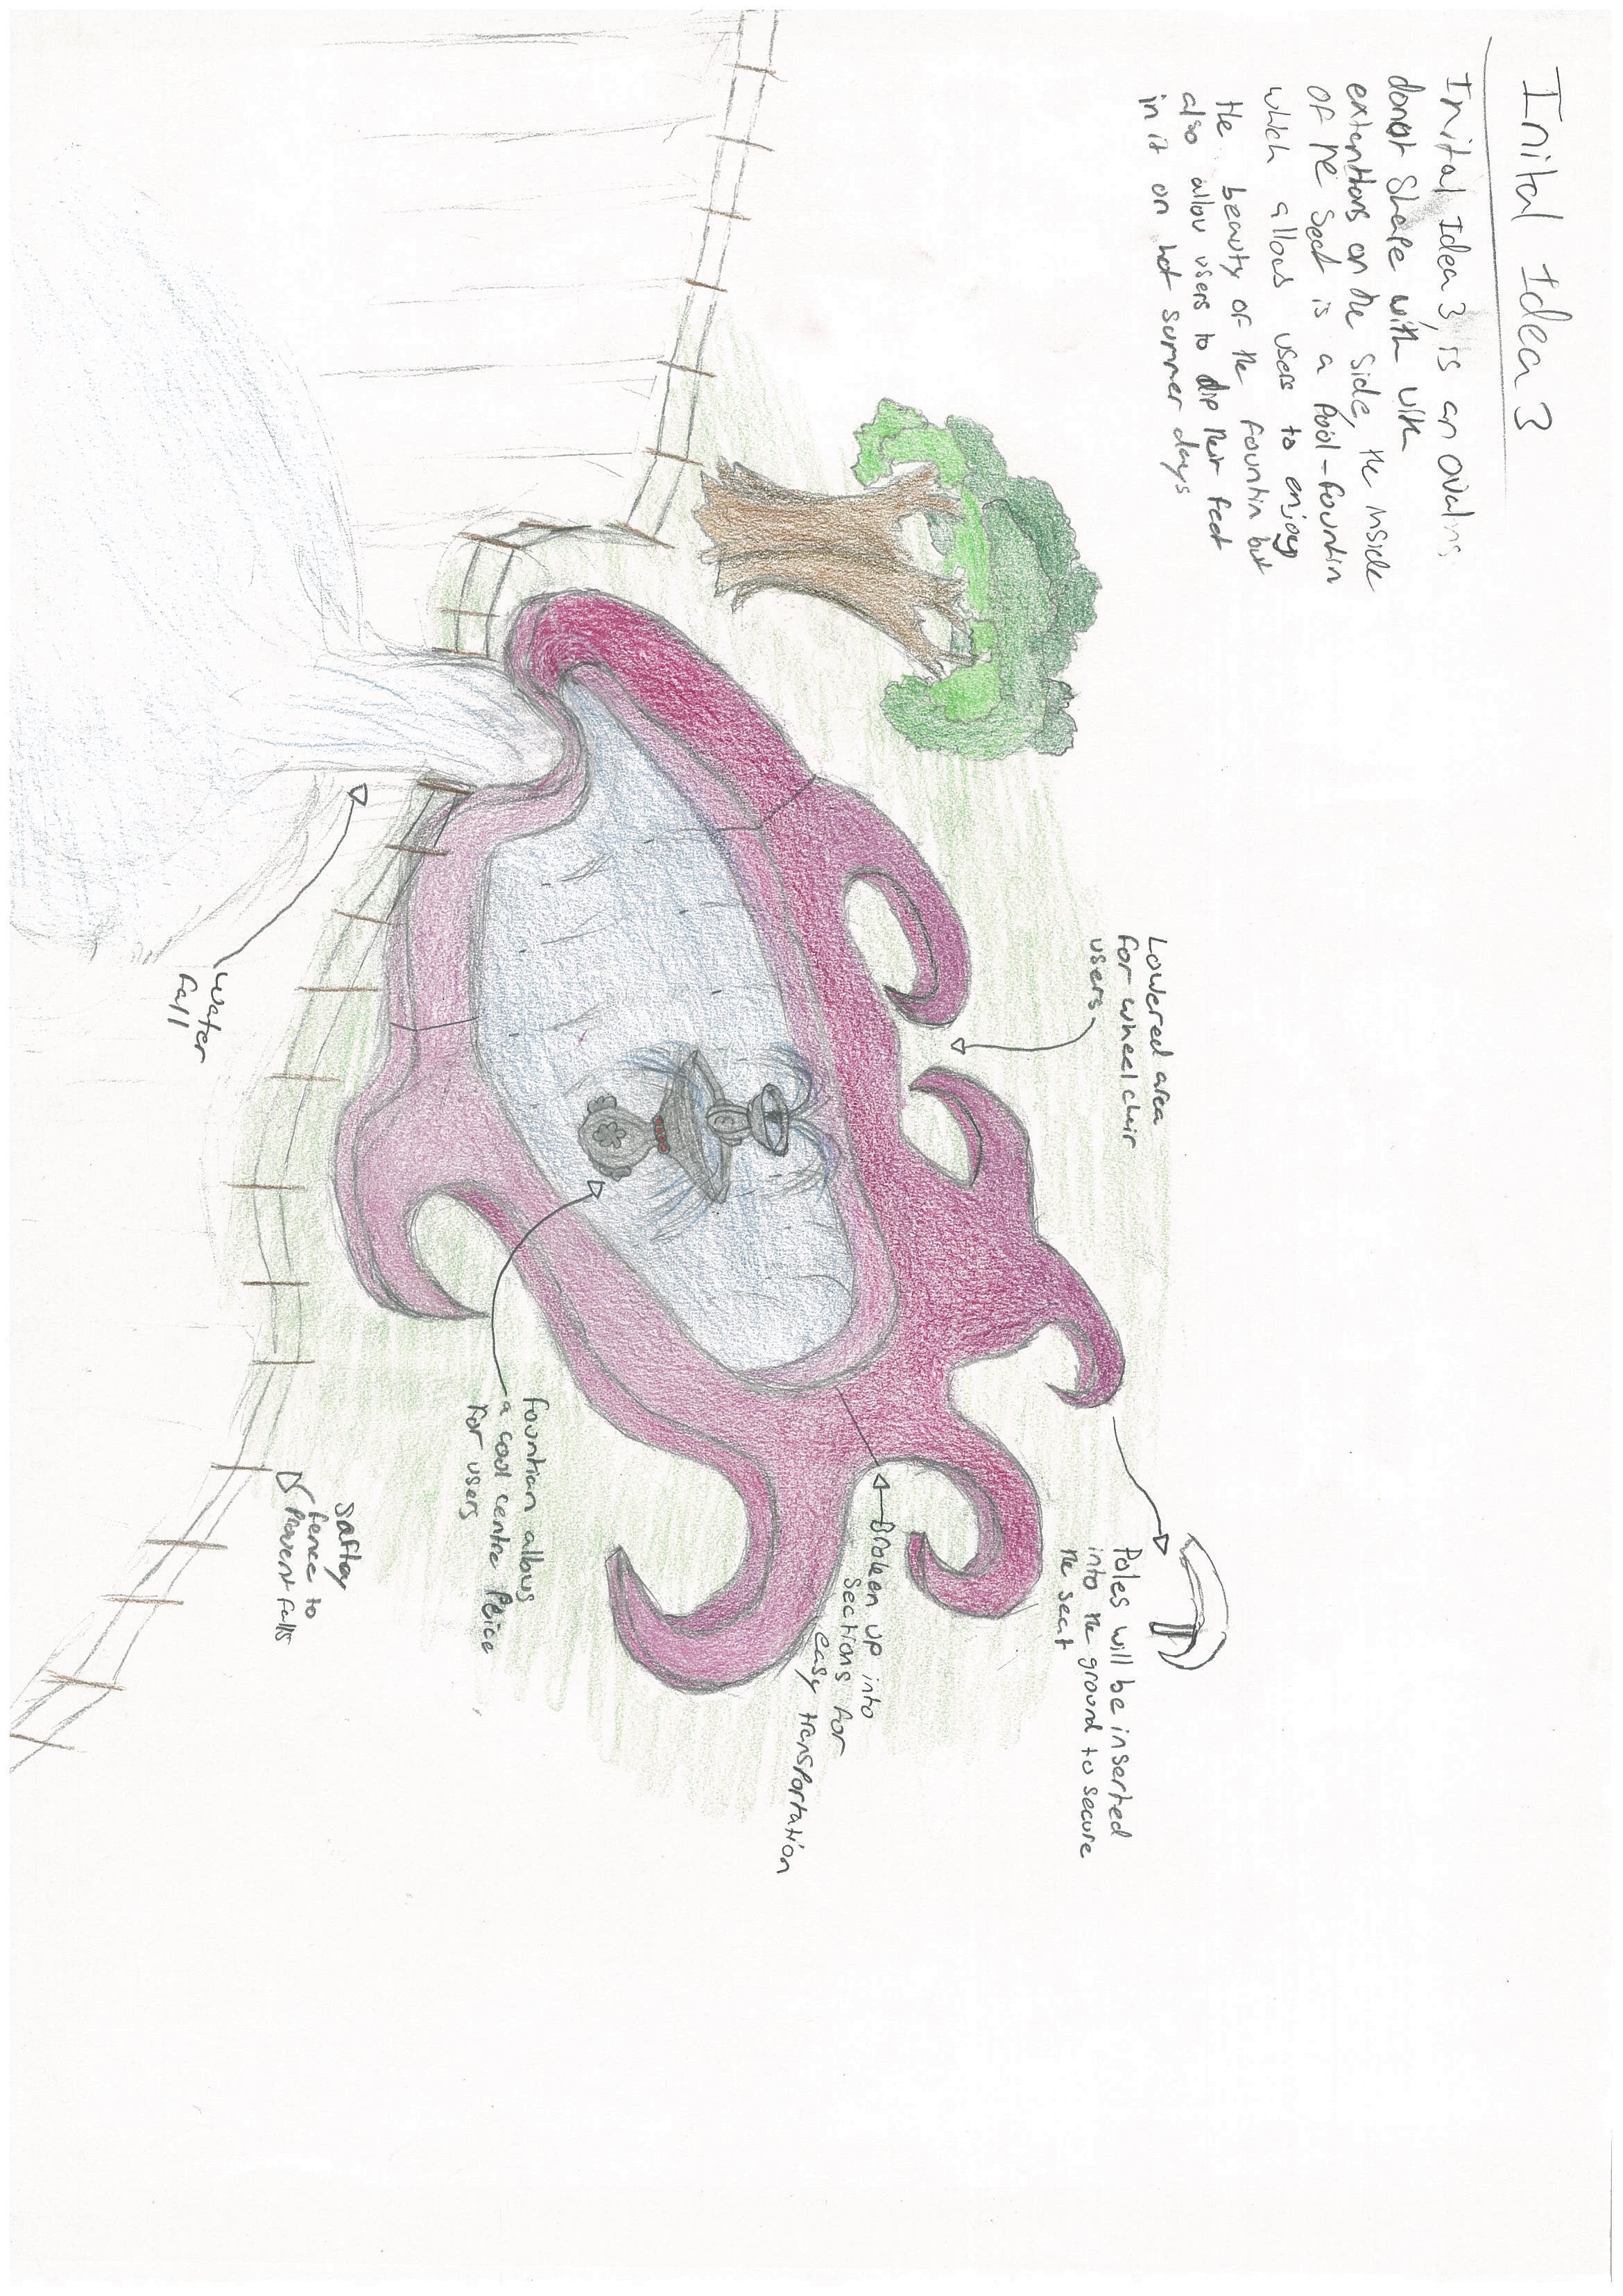 Inital Idea 3
Inital Idea 3, is an Oval
donot Shape with with
extentions on the Side, the inside
OF the Seat is a Pool-fountin
which allows users to enjoy
the beauty OF the Fountin but
also allow users to dip their feet
in it on hot summer days
Lowered area
for wheel chair
users
Poles will be inserted
into the ground to secure
the seat
Broken up into
sections for
easy transportation
fountian allows
a cool centre Peice
for users
Saftey
fence to
Prevent falls
water
fall